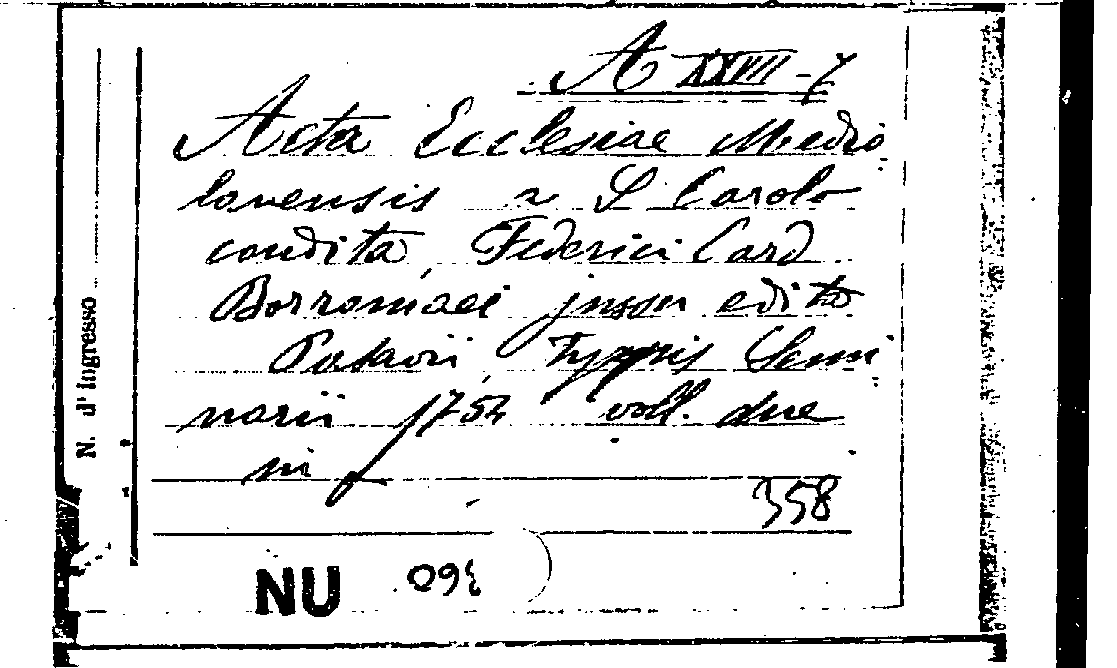 A XXVII-7
Acta Ecclesiae Medio
lanensis a S Carolo
condita, Federici Card
Borromaei jussu edita
Patavii, Typis Semi
narii 1754 voll. due
in f
358
NU 093
N. d'Ingresso